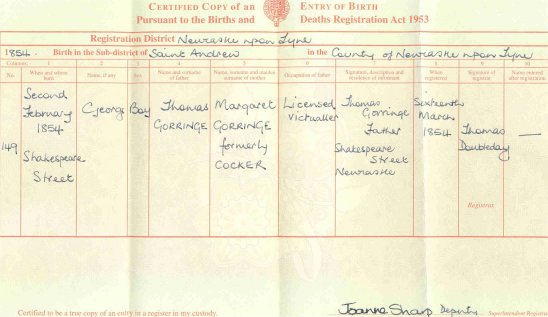 CERTIFIED COPY of an ENTRY OF BIRTH
Pursuant to the Births and Deaths Registration Act 1953
Registration District Newcastle upon Tyne
1854. Birth in the Sub-district of Saint Andrew in the County of Newcastle upon Tyne
Columns: 1 2 3 4 5 6 7 8 9 10
No. When and where born Name, if any Sex Name and surname of father Name, surname and maiden surname of mother Occupation of father Signature, description and residence of informant When registered Signature of registrar Name entered after registration
149 Second February 1854 Shakespeare Street George Boy Thomas GORRINGE Margaret GORRINGE formerly COCKER Licensed Victualler Thomas Gorringe Father Shakespeare Street Newcastle Sixteenth March 1854 Thomas Doubleday —
Registrar
Certified to be a true copy of an entry in a register in my custody.
Joanne Sharp Deputy Superintendent Registrar